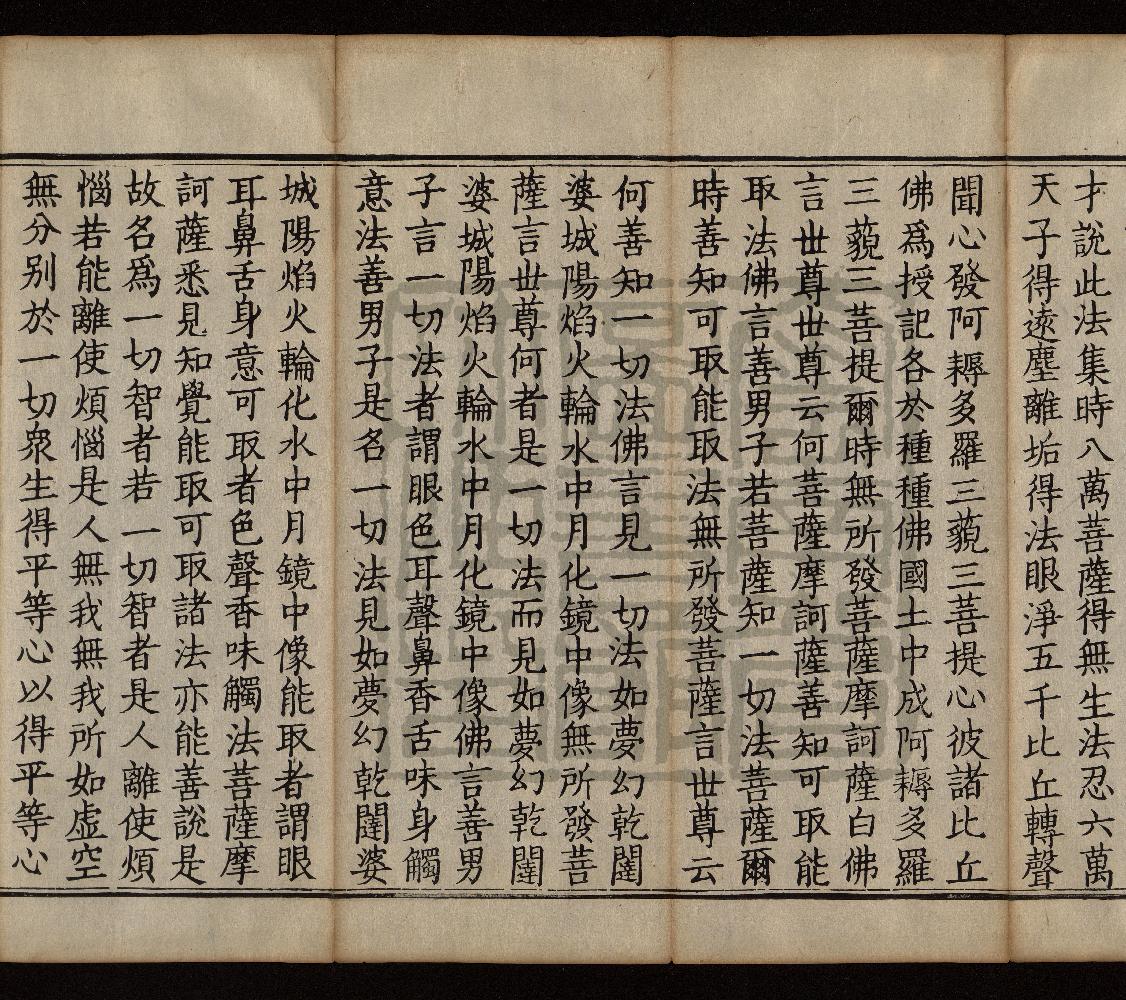 才說此法集時八萬菩薩得無生法忍六萬
天子得遠塵離垢得法眼淨五千比丘轉聲
聞心發阿耨多羅三藐三菩提心彼諸比丘
佛爲授記各於種種佛國土中成阿耨多羅
三藐三菩提爾時無所發菩薩摩訶薩白佛
言世尊世尊云何菩薩摩訶薩善知可取能
取法佛言善男子若菩薩知一切法菩薩爾
時善知可取能取法無所發菩薩言世尊云
何善知一切法佛言見一切法如夢幻乾闥
婆城陽焰火輪水中月化鏡中像無所發菩
薩言世尊何者是一切法而見如夢幻乾闥
婆城陽焰火輪水中月化鏡中像佛言善男
子言一切法者謂眼色耳聲鼻香舌味身觸
意法善男子是名一切法見如夢幻乾闥婆
城陽焰火輪化水中月鏡中像能取者謂眼
耳鼻舌身意可取者色聲香味觸法菩薩摩
訶薩悉見知覺能取可取諸法亦能善說是
故名爲一切智者若一切智者是人離使煩
惱若能離使煩惱是人無我無我所如虛空
無分別於一切衆生得平等心以得平等心